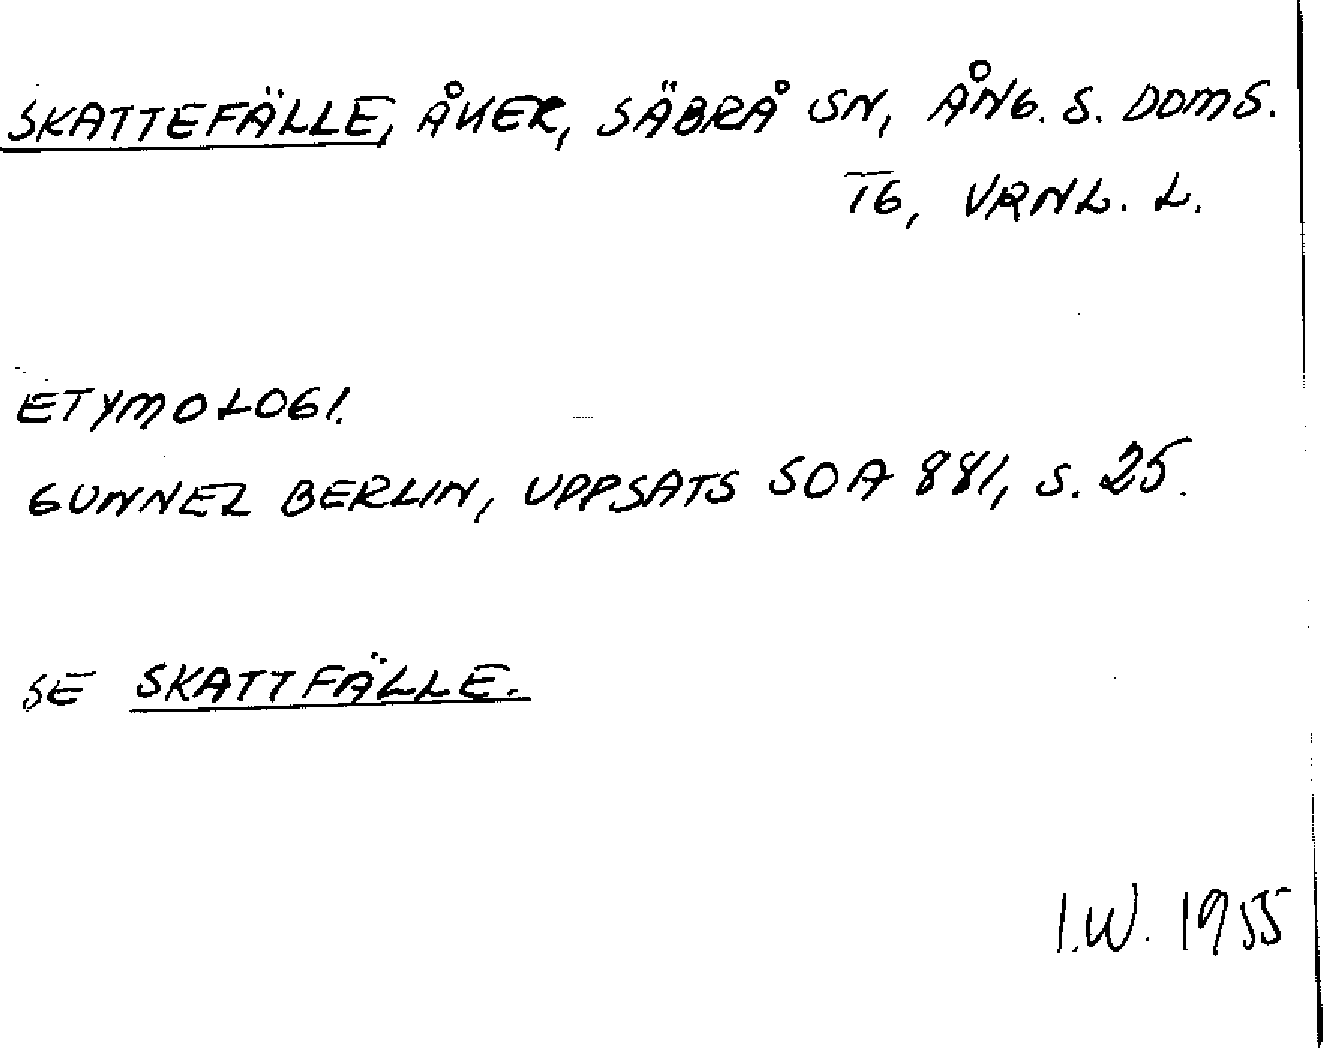 SKATTEFÄLLE, ÅKER, SÄBRÅ SN, ÅNG. S. DOMS.
TG, VRNL. L.
ETYMOLOGI.
GUNNEL BERLIN, UPPSATS SOA 881, S. 25.
SE SKATTFÄLLE.
I.W. 1955